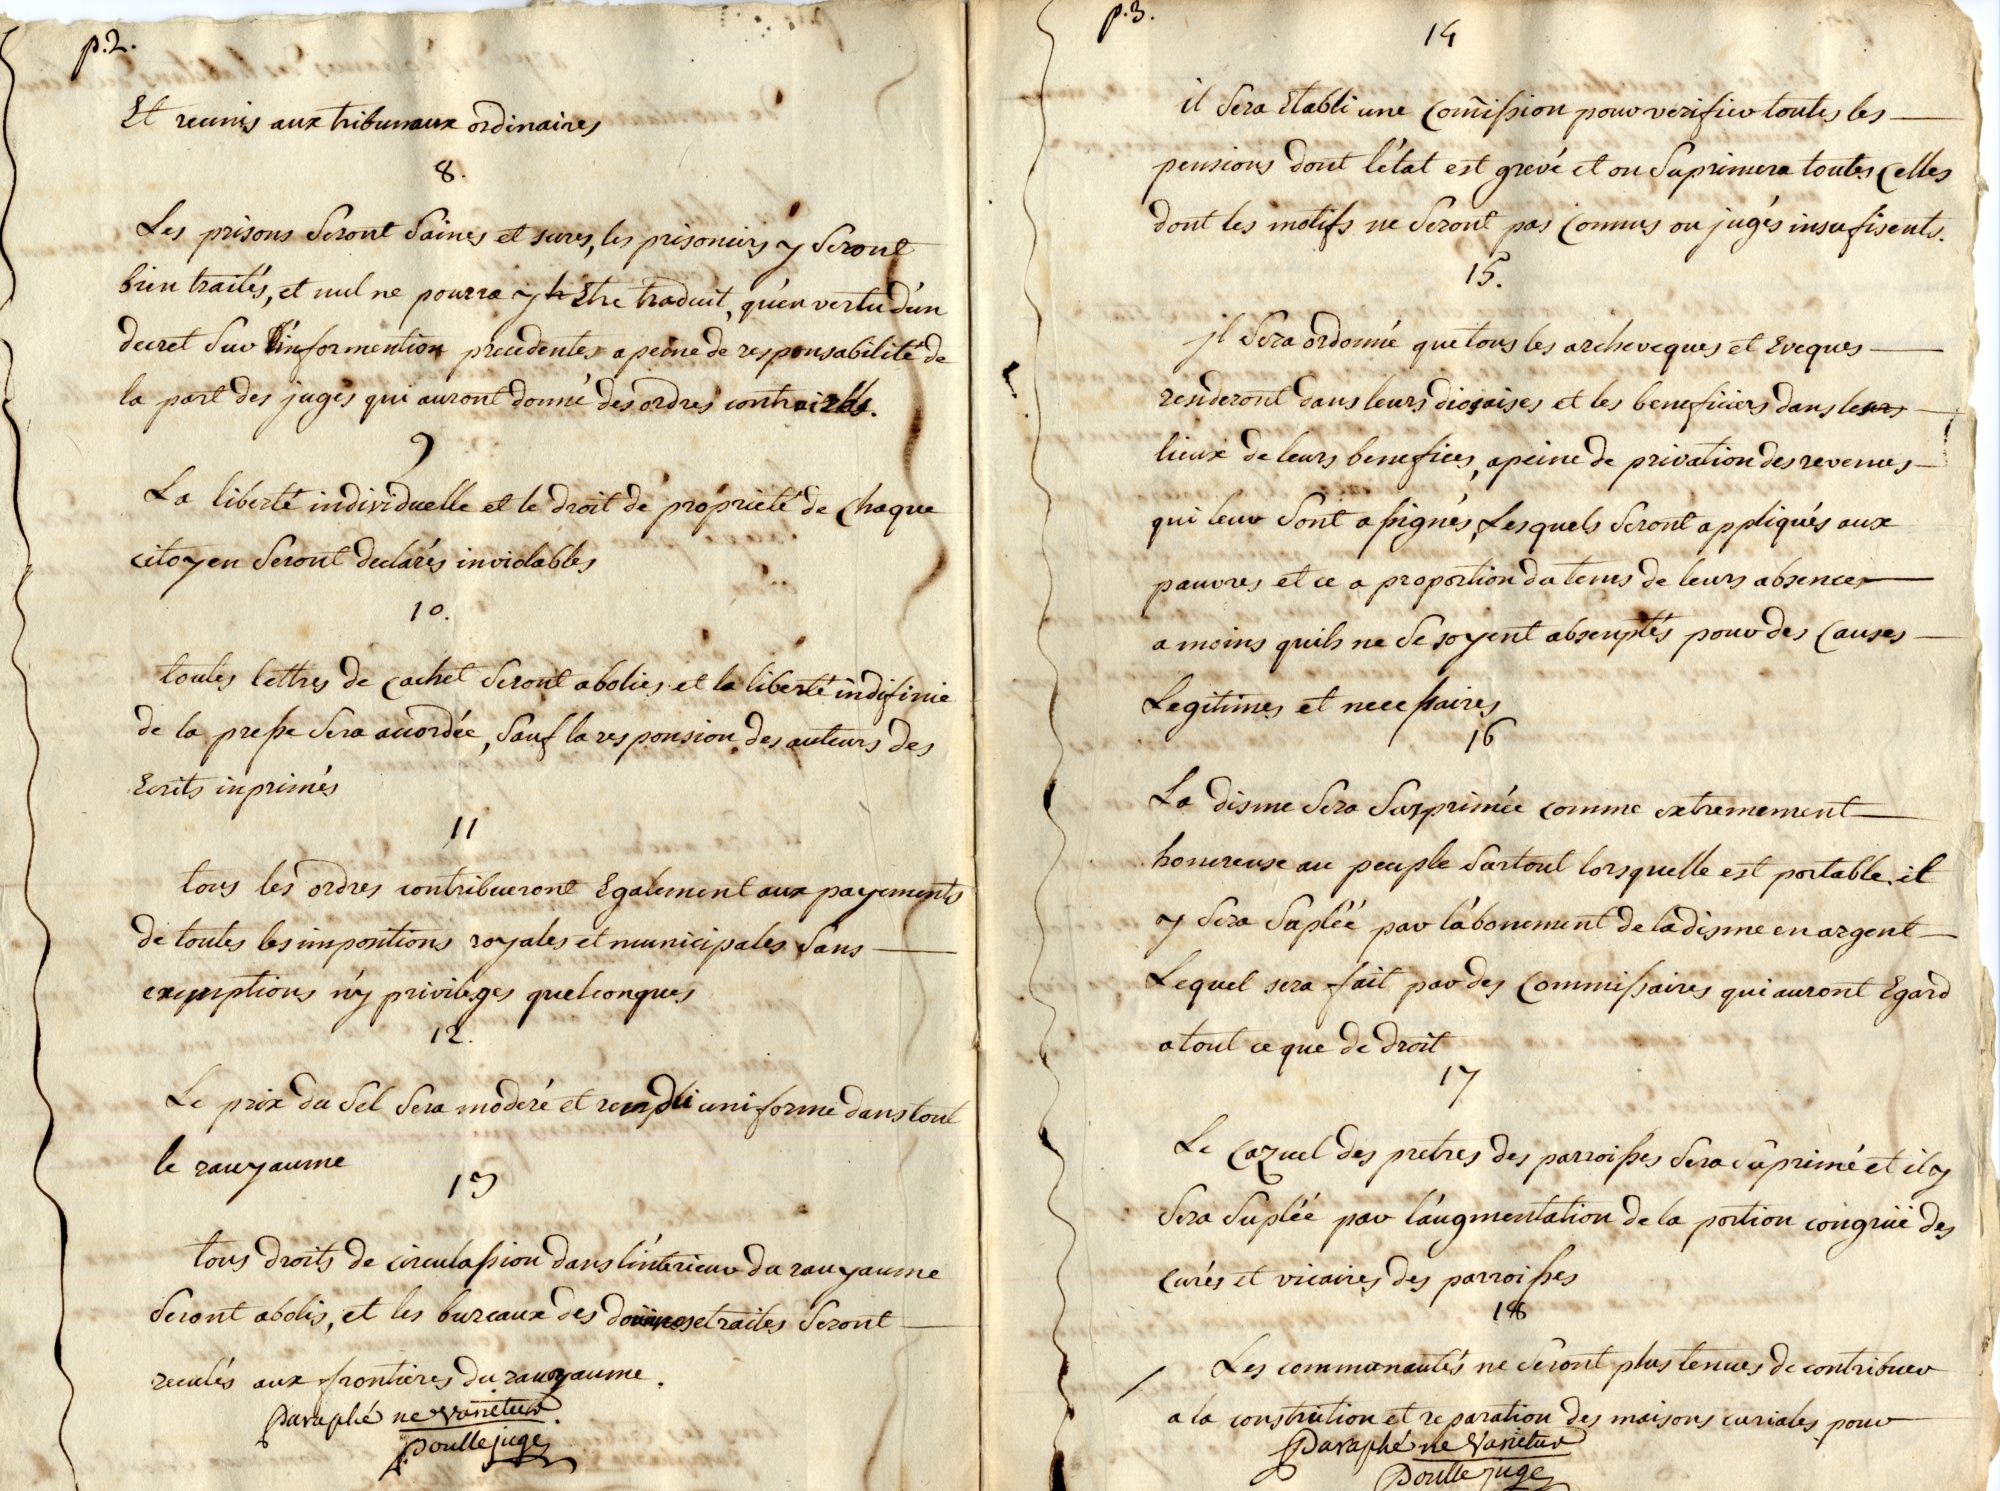 p.2.
Et reunis aux tribunaux ordinaires
8.
Les prisons seront saines et sures, les prisoniers y seront
bien traités, et nul ne pourra y être traduit, qu'en vertu d'un
decret sur l'informention precedentes a peine de responsabilité de
la part des juges qui auront donné des ordres contraires.
9
La liberté individuelle et le droit de proprieté de chaque
citoyen seront declarés inviolables
10.
toutes lettres de cachet seront abolies et la liberté indifinie
de la presse sera acordée, sauf la responsion des auteurs des
Ecrits inprimés
11
tous les ordres contribueront Egalement aux payements
de toutes les impositions royales et municipales sans
exemptions n'y privileges quelconques
12.
Le prix du sel sera moderé et rendu uniforme dans tout
le rauyaume
13
tous droits de circulassion dans l'interieur du rauyaume
seront abolis, et les bureaux des traites seront
reculés aux frontieres du rauyaume.
Paraphé ne varietur.
Poulle juge
p.3.
14
il sera Etabli une comission pour verifier toutes les
pensions dont l'état est grevé et on suprimera toutes celles
dont les motifs ne seront pas connus ou jugés insufisents.
15.
jl sera ordonné que tous les archeveques et Eveques
resideront dans leurs diocaises et les beneficiers dans les
lieux de leurs benefices, a peine de privation des revenus
qui leur sont assignés, Lesquels seront appliqués aux
pauvres et ce a proportion du tems de leurs absences
a moins quils ne se soyent absentés pour des causes
Legitimes et necessaires
16
La disme sera supprimée comme extremement
honereuse au peuple surtout lorsquelle est portable. il
y sera suplée par l'abonement de la disme en argent
Lequel sera fait par des commissaires qui auront Egard
a tout ce que de droit
17
Le cazuel des pretres des parroisses sera suprimé et il y
sera suplée par l'augmentation de la portion congruë des
curés et vicaires des parroisses
18
Les communautés ne seront plus tenues de contribuer
a la constrution et reparation des maisons curiales pour
Paraphé ne varietur
Poulle juge